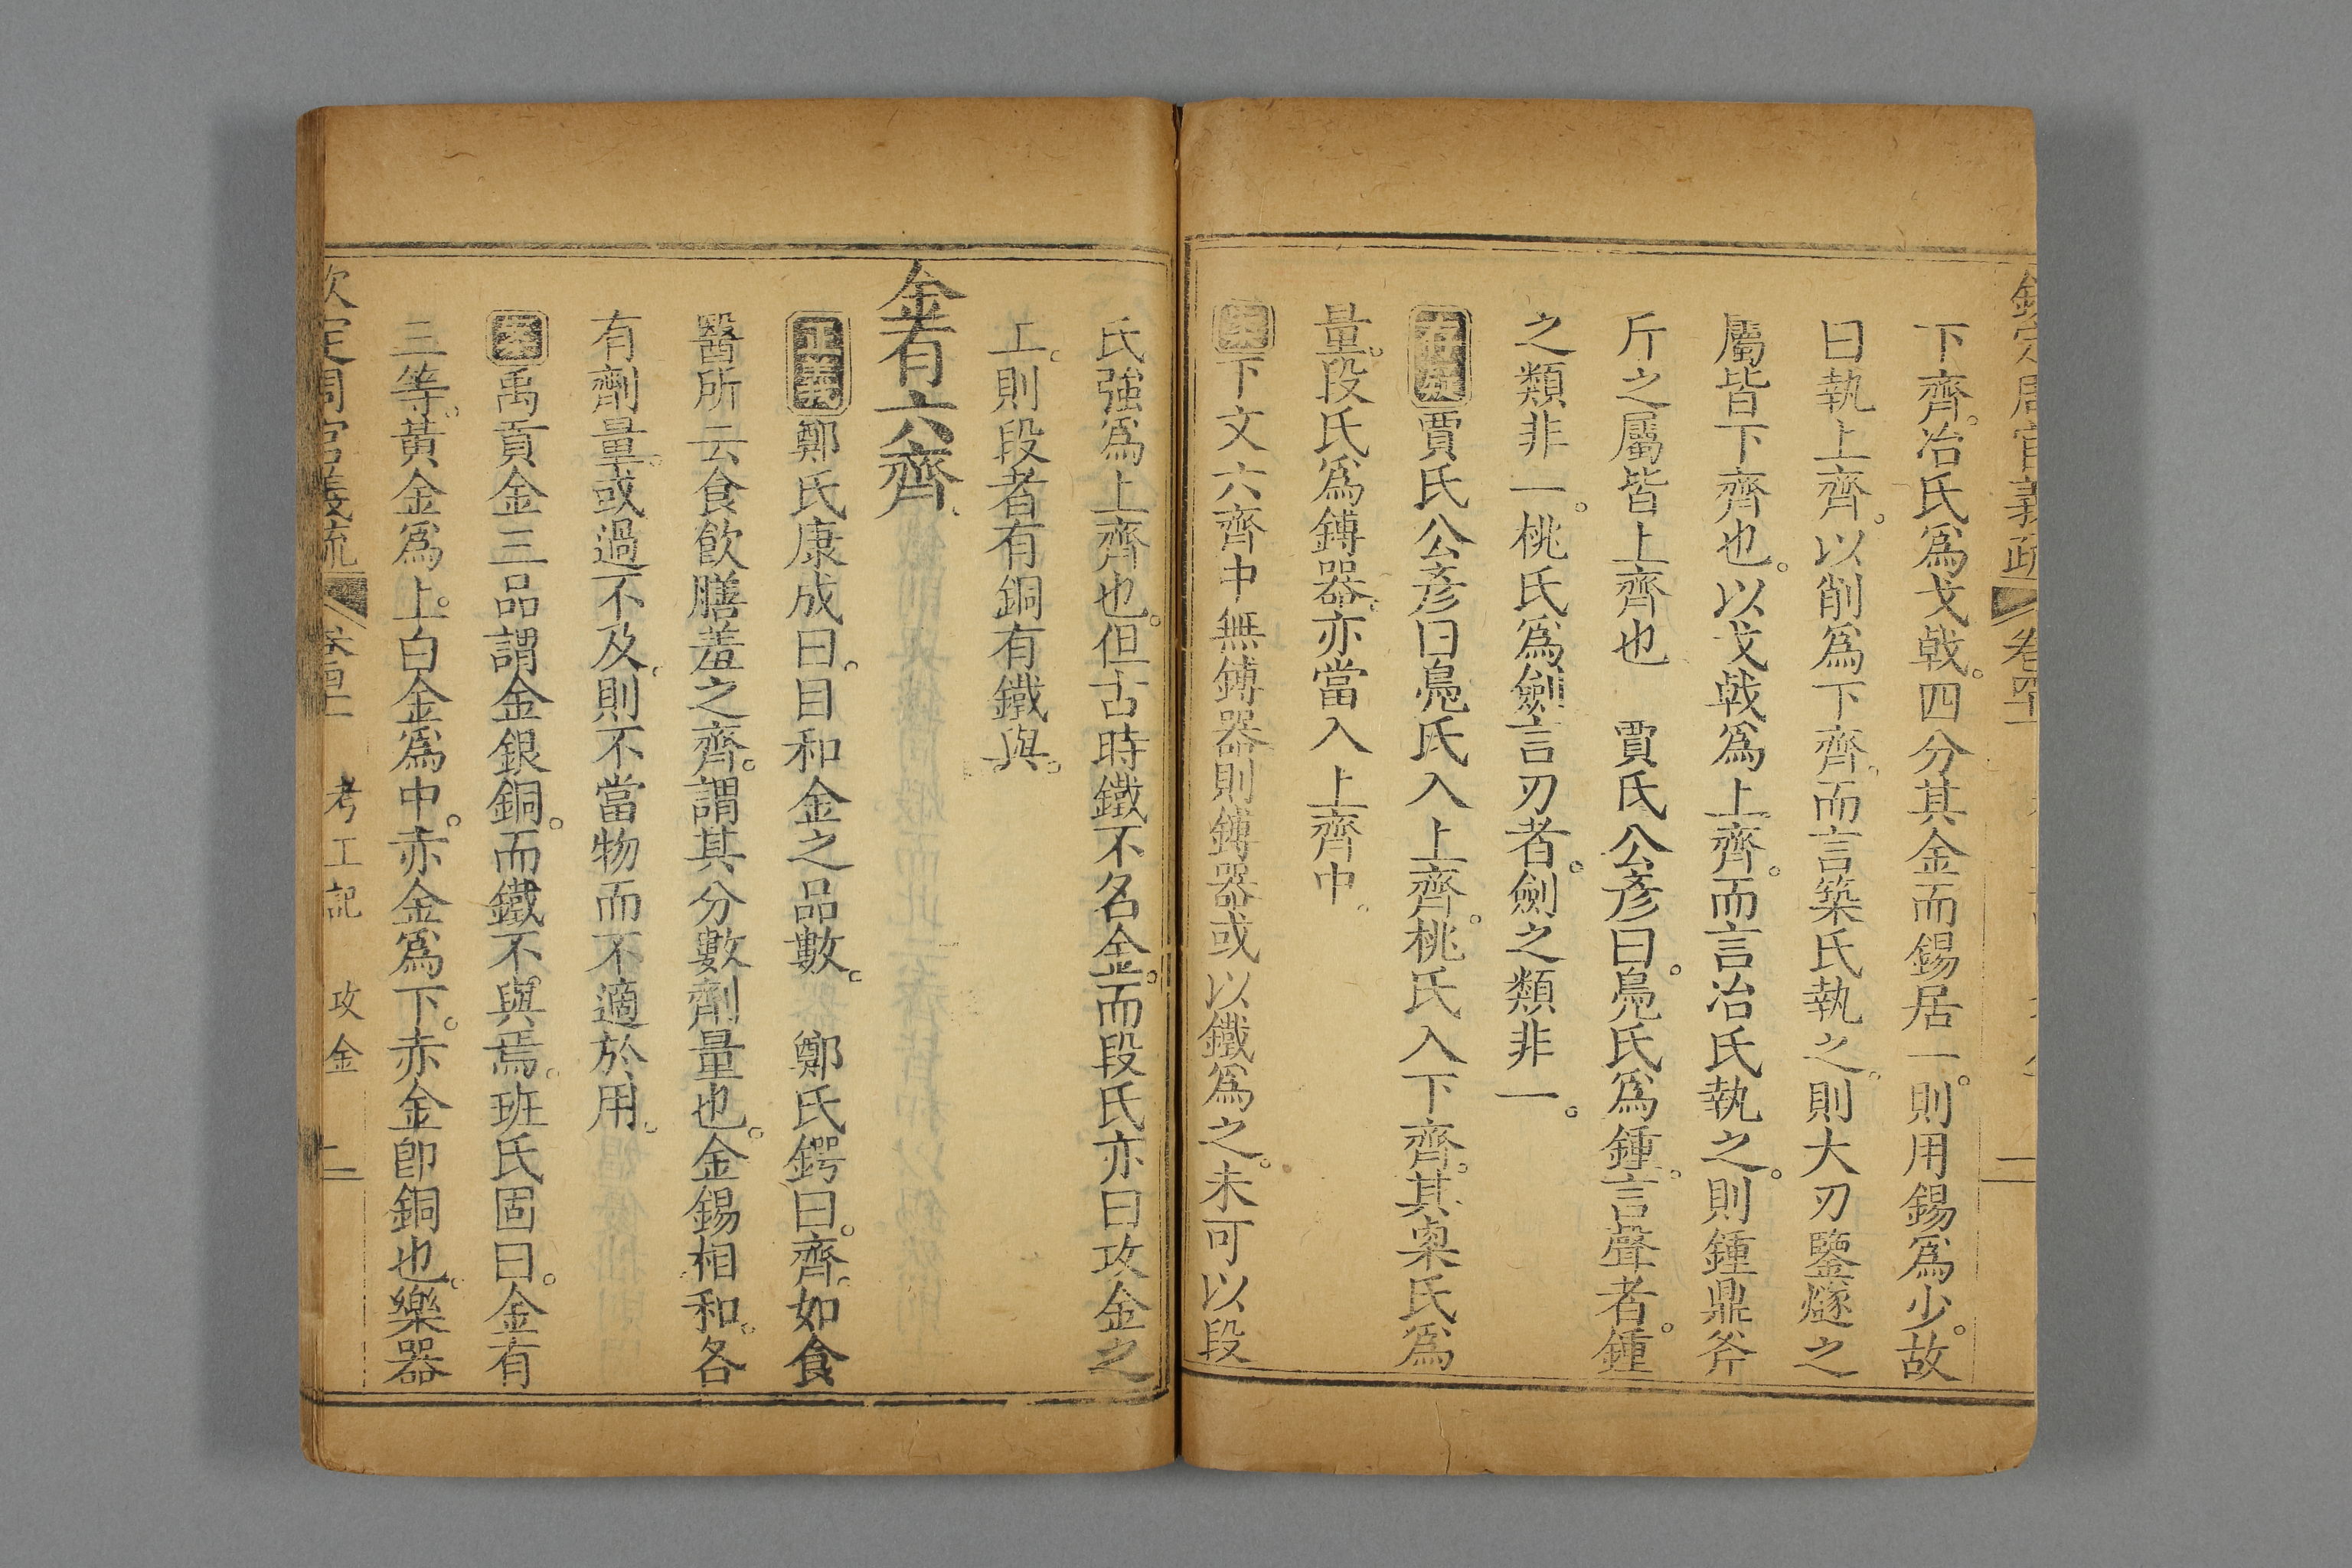 欽定周官義疏 卷四十二
下齊。冶氏爲戈戟。四分其金而錫居一。則用錫爲少。故
曰執上齊。以削爲下齊。而言築氏執之。則大刃鑒燧之
屬皆下齊也。以戈戟爲上齊。而言冶氏執之。則鍾鼎斧
斤之屬皆上齊也　賈氏公彥曰。鳧氏爲鍾。言聲者。鍾
之類非一。桃氏爲劍言刃者。劍之類非一。
存疑賈氏公彥曰鳧氏入上齊。桃氏入下齊。其㮚氏爲
量。段氏爲鎛器。亦當入上齊中。
案下文六齊中無鎛器則鎛器或以鐵爲之。未可以段
氏強爲上齊也。但古時鐵不名金。而段氏亦曰攻金之
工。則段者有銅有鐵與。
金有六齊。
正義鄭氏康成曰。目和金之品數。　鄭氏鍔曰。齊。如食
醫所云食飲膳羞之齊。謂其分數劑量也。金錫相和。各
有劑量。或過不及。則不當物而不適於用。
案禹貢金三品謂金銀銅。而鐵不與焉。班氏固曰。金有
三等。黃金爲上。白金爲中。赤金爲下。赤金卽銅也。樂器
欽定周官義疏 卷四十二 考工記 攻金 二